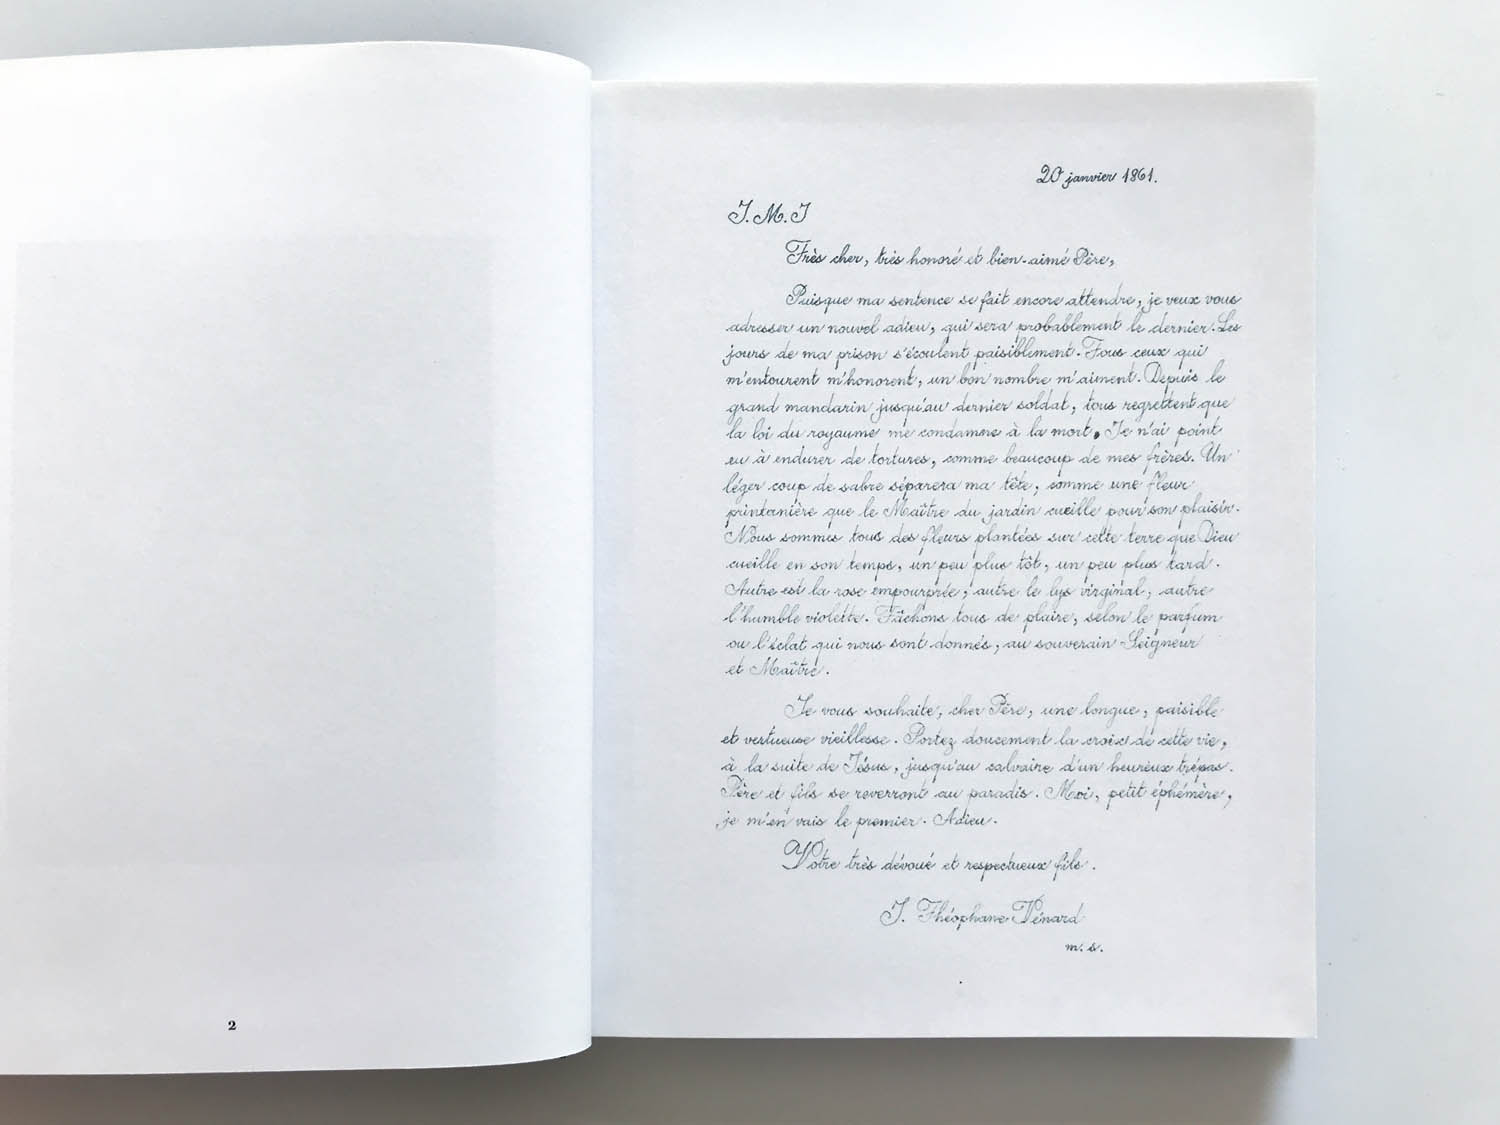 2
20 janvier 1861.
J.M.J
Très cher, très honoré et bien-aimé Père,
Puisque ma sentence se fait encore attendre, je veux vous
adresser un nouvel adieu, qui sera probablement le dernier. Les
jours de ma prison s'écoulent paisiblement. Tous ceux qui
m'entourent m'honorent, un bon nombre m'aiment. Depuis le
grand mandarin jusqu'au dernier soldat, tous regrettent que
la loi du royaume me condamne à la mort. Je n'ai point
eu à endurer de tortures, comme beaucoup de mes frères. Un
léger coup de sabre séparera ma tête, comme une fleur
printanière que le Maître du jardin cueille pour son plaisir.
Nous sommes tous des fleurs plantées sur cette terre que Dieu
cueille en son temps, un peu plus tôt, un peu plus tard.
Autre est la rose empourprée, autre le lys virginal, autre
l'humble violette. Tâchons tous de plaire, selon le parfum
ou l'éclat qui nous sont donnés, au souverain Seigneur
et Maître.
Je vous souhaite, cher Père, une longue, paisible
et vertueuse vieillesse. Portez doucement la croix de cette vie,
à la suite de Jésus, jusqu'au calvaire d'un heureux trépas.
Père et fils se reverront au paradis. Moi, petit éphémère,
je m'en vais le premier. Adieu.
Votre très dévoué et respectueux fils.
J. Théophane Vénard
m.s.